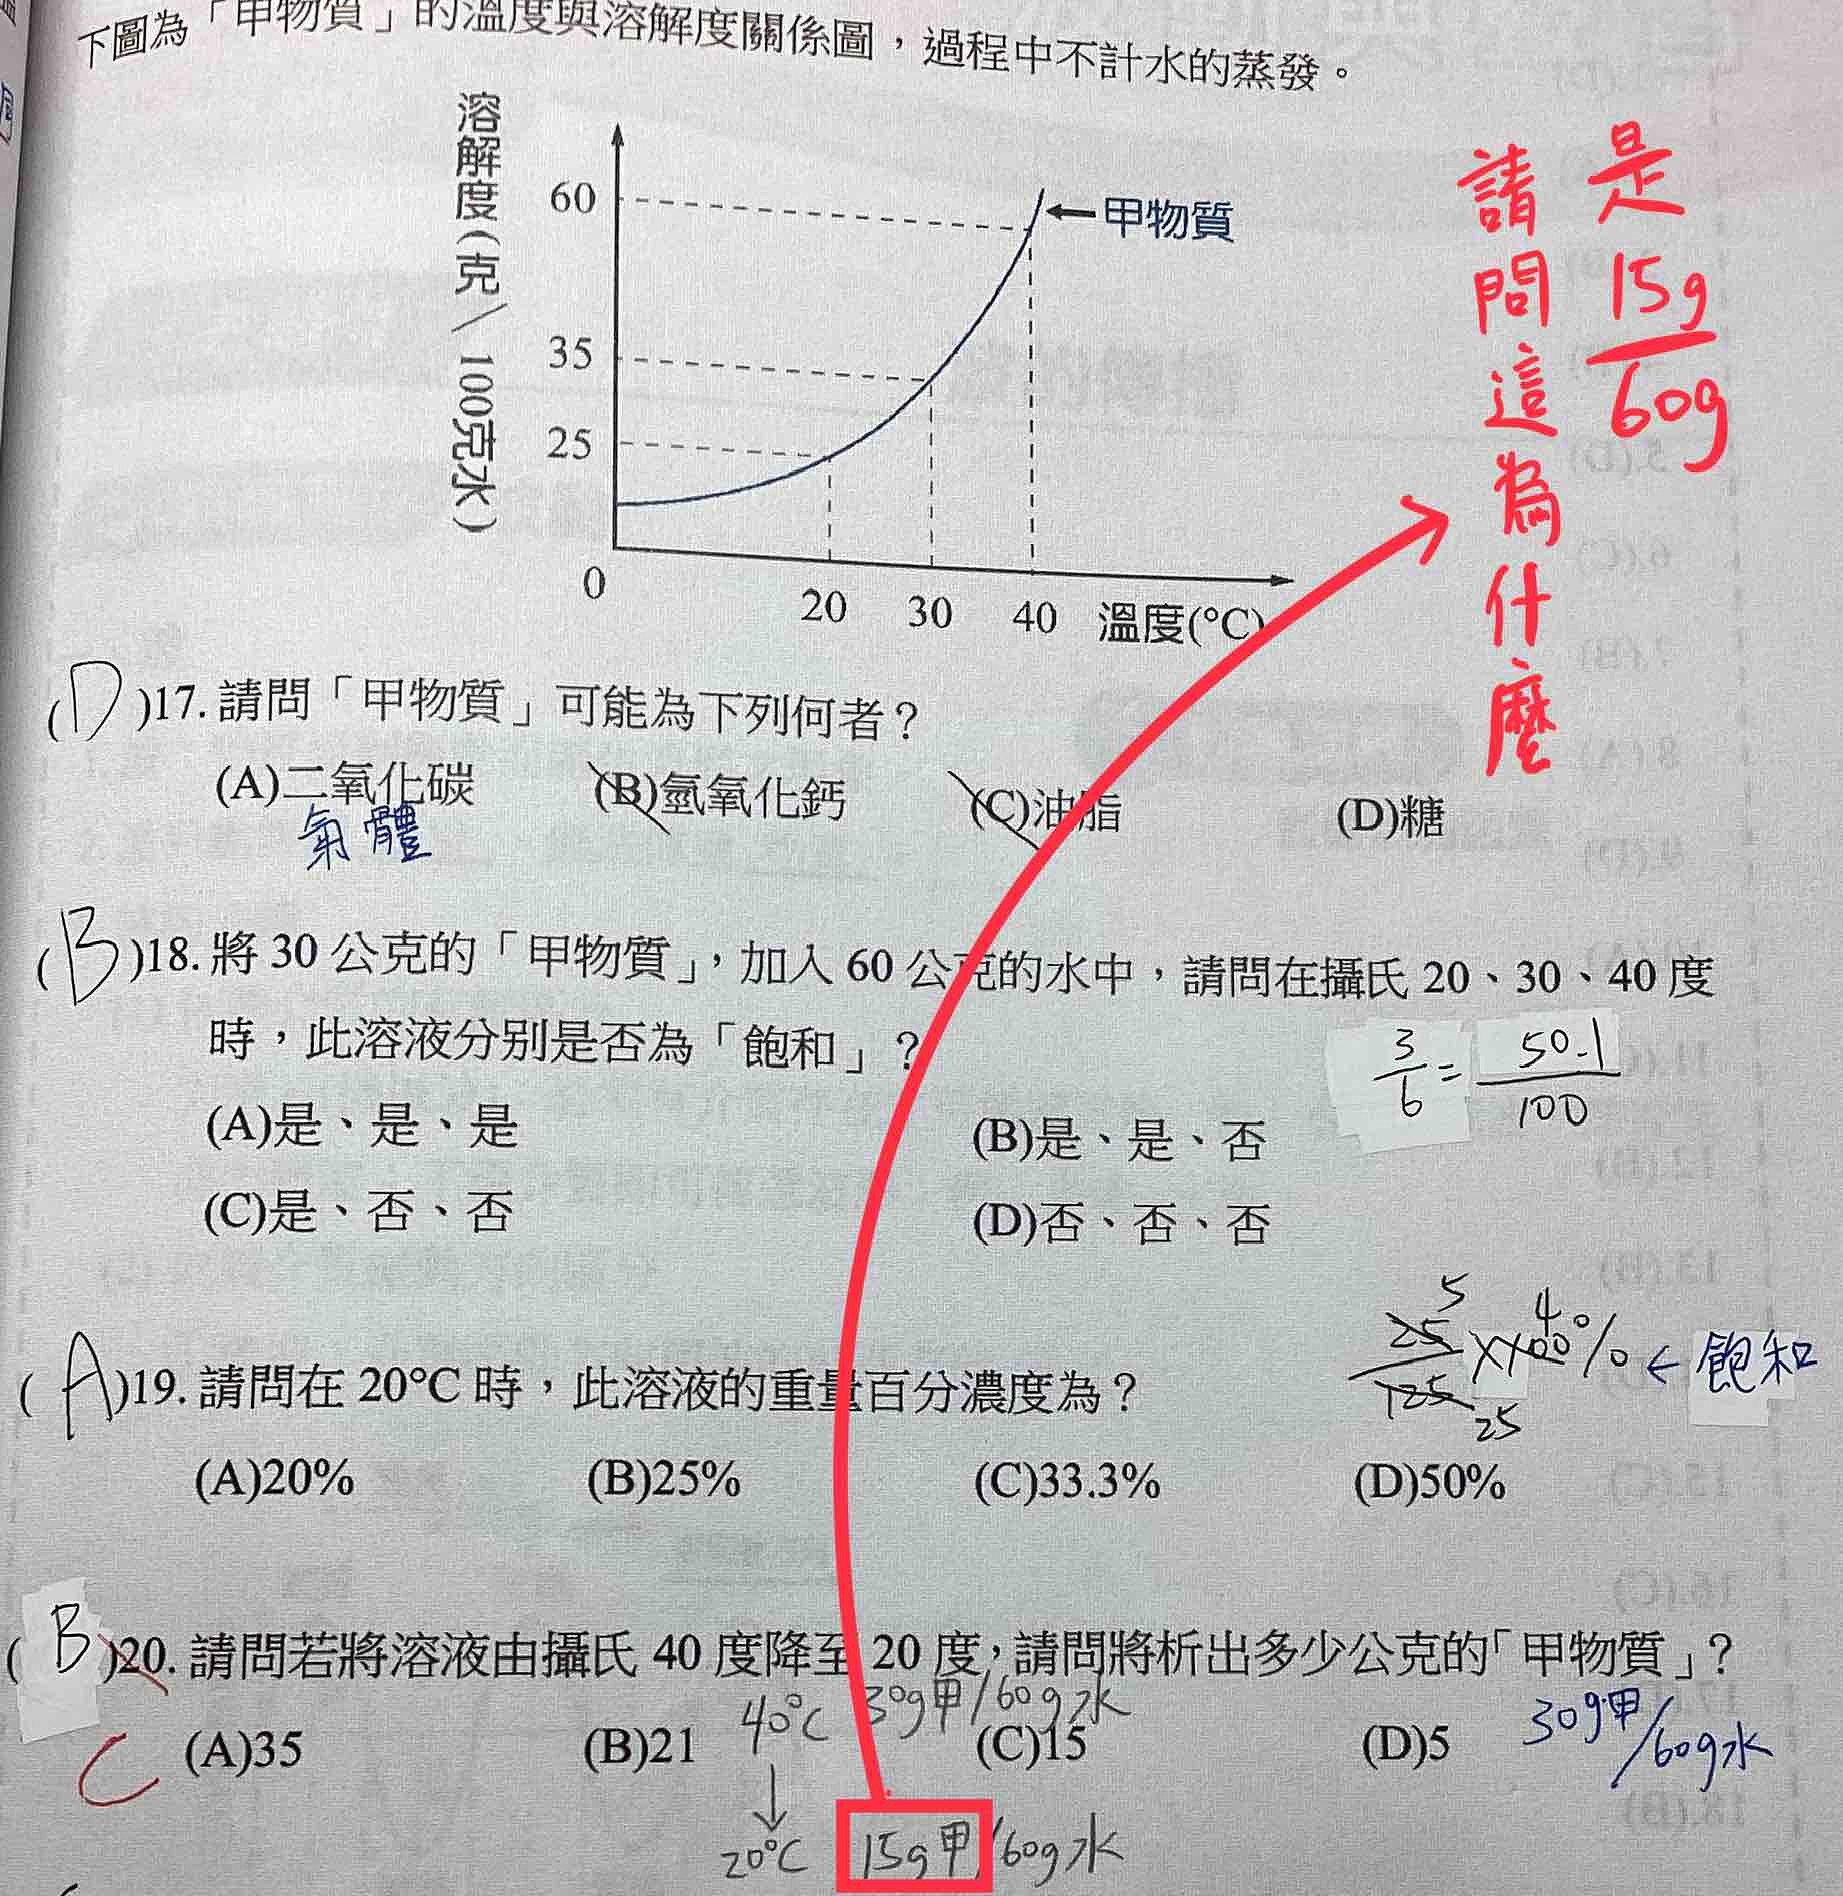 下圖為「甲物質」的溫度與溶解度關係圖，過程中不計水的蒸發。
溶解度(克/100克水)
60
35
25
0
20 30 40 溫度(°C)
甲物質
請問這為什麼
是
15g
60g
(D)17. 請問「甲物質」可能為下列何者？
(A)二氧化碳 (B)氫氧化鈣 (C)油脂 (D)糖
氣體
(B)18. 將 30 公克的「甲物質」，加入 60 公克的水中，請問在攝氏 20、30、40 度
時，此溶液分別是否為「飽和」？
3/6 = 50.1/100
(A)是、是、是 (B)是、是、否
(C)是、否、否 (D)否、否、否
(A)19. 請問在 20°C 時，此溶液的重量百分濃度為？
5 4
25/125 × 100% ← 飽和
25
(A)20% (B)25% (C)33.3% (D)50%
(B)20. 請問若將溶液由攝氏 40 度降至 20 度，請問將析出多少公克的「甲物質」？
C
(A)35 (B)21 (C)15 (D)5
40°C 30g甲/60g水
30g甲/60g水
↓
20°C 15g甲/60g水